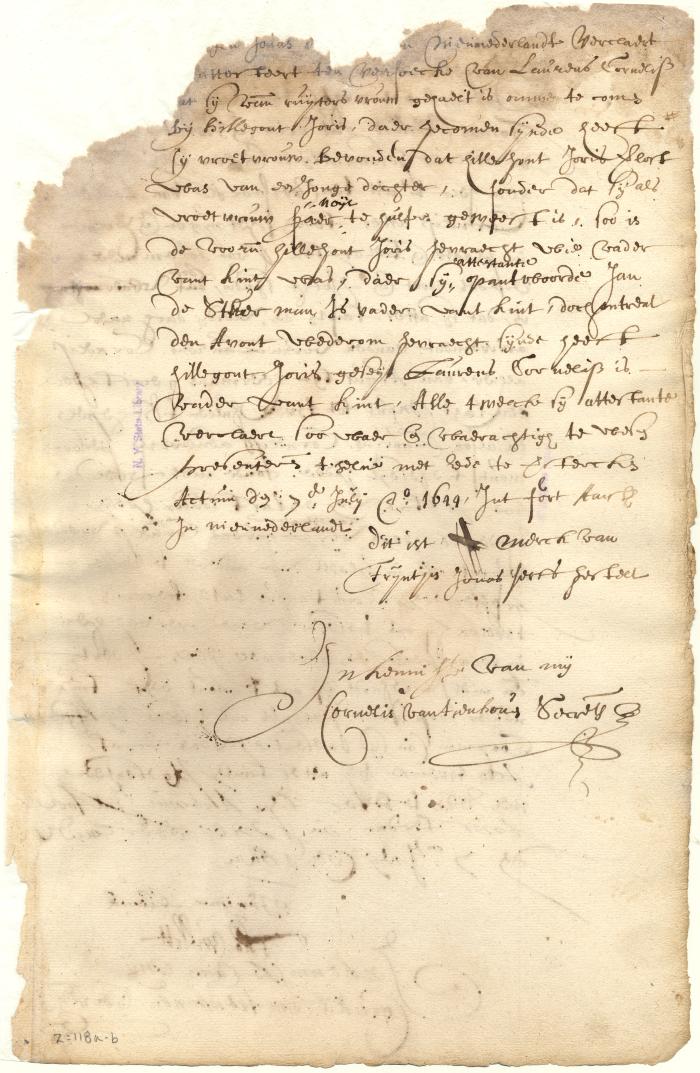 Jonas in nieunederlandt Verclaert
atteerten versoecke van Laurens Cornelisz
dat sy van ruyters vrouw gehaelt is omme te comen
by hillegont Joris, daer gecomen synde heeft
sy vroetvrouw bevonden dat hillegont Joris
was van een Jonge dochter, sonder dat sy als
vroetvrouw haer noyt te hulpe geweest is, soo is
de voorn hillegont Joris gevraecht wie vader
vant kint was, daer sy attestante, op antwoorde Jan
de Sther man Is vader vant kint, doch ontrent
den Avont wederom gevraecht synde heeft
hillegont Joris geseyt Laurens Cornelisz is
Vader vant kint, Alle twelcke sy attestante
verclaert soo waer & waerachtigh te wesen
presenteren tselve met eede te stercken
Actum den 7 de July Ao 1644, Int fort
In nieunederlandt
dit ist merck van
Tryntjis Jonas gestelt
In kennisse van my
Cornelis van tienhoven Secrets
N. Y. State Library
2:118a-b